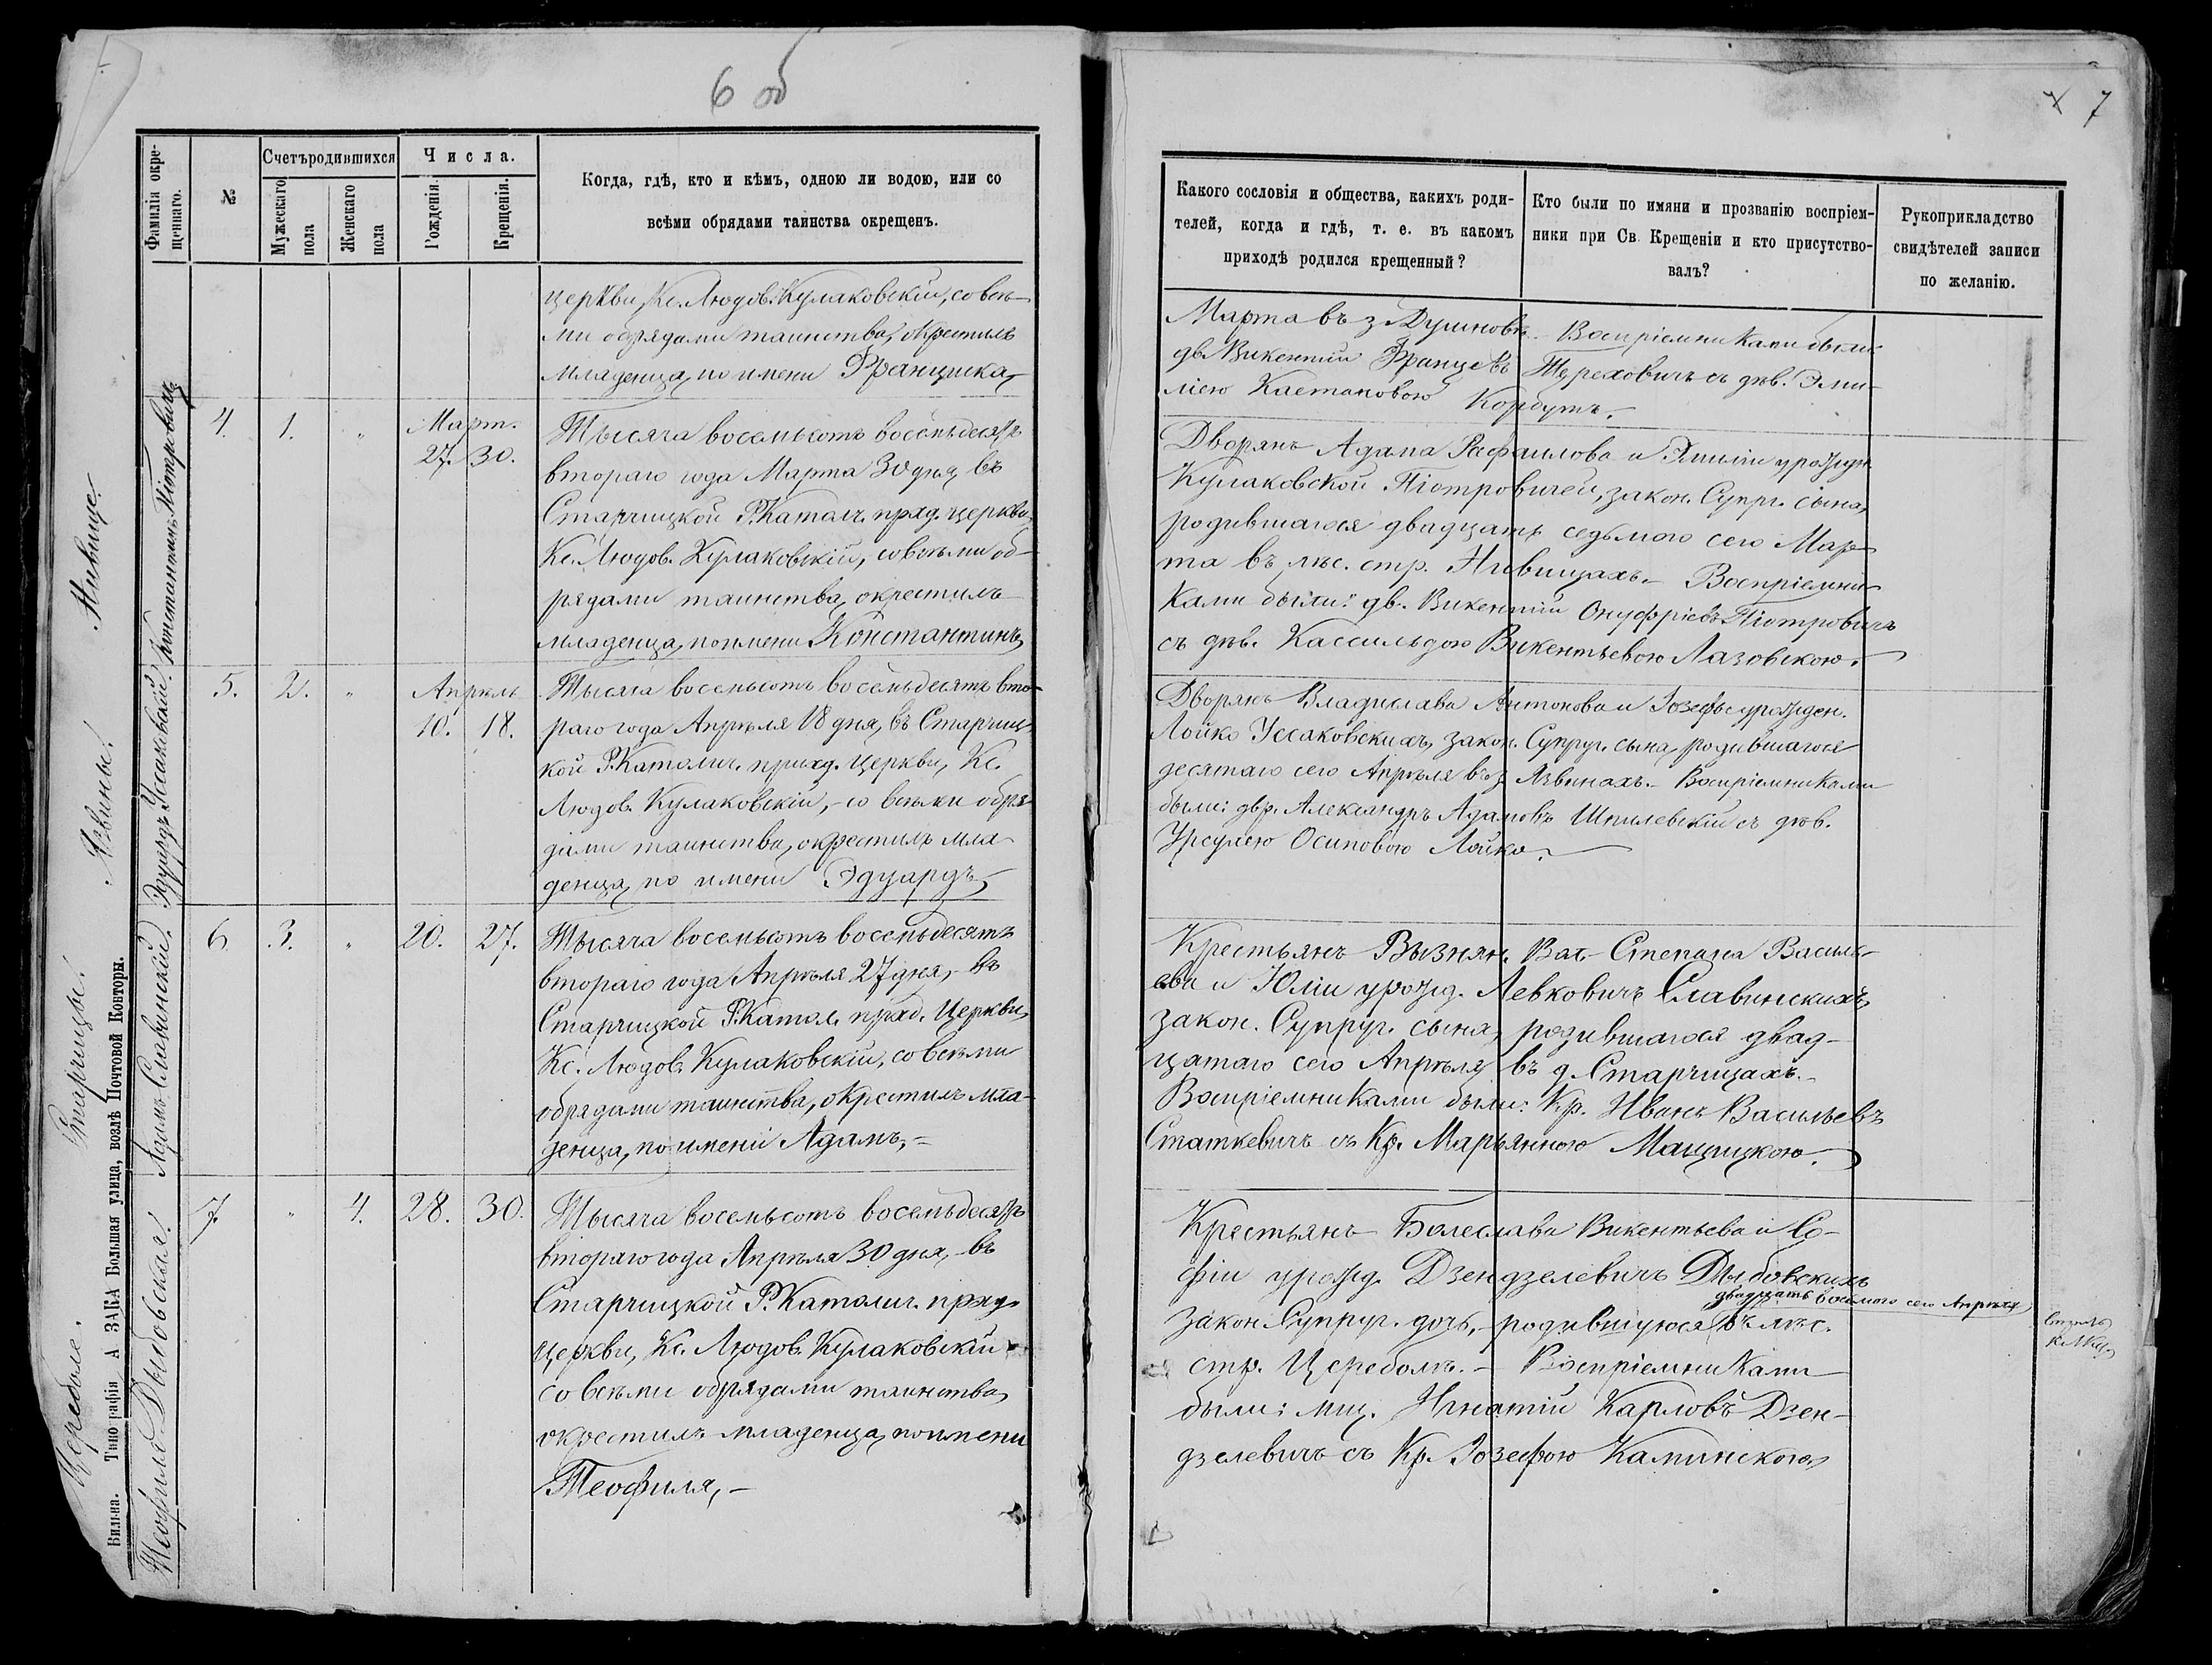 6 об
7
Фамилія окре-
щеннаго.
№
Счетъ родившихся
Мужескаго
пола
Женскаго
пола
Числа.
Рожденія.
Крещенія.
Когда, гдѣ, кто и кѣмъ, одною ли водою, или со
всѣми обрядами таинства окрещенъ.
Какого сословія и общества, какихъ роди-
телей, когда и гдѣ, т. е. въ какомъ
приходѣ родился крещенный?
Кто были по имяни и прозванію воспріем-
ники при Св. Крещеніи и кто присутство-
валъ?
Рукоприкладство
свидѣтелей записи
по желанію.
церкви, Кс. Людов. Кулаковскій, со всѣ-
ми обрядами таинства, окрестилъ
младенца, по имени Францишка,
Марта въ з. Дулиновѣ. Воспріемниками были:
дв. Викентій Францевъ Тереховичъ съ дѣв. Эми-
ліею Каетановою Корбутъ.
Константинъ Піотровичъ
Нивище.
4. 1. „ Март.
27. 30.
Тысяча восемьсотъ восемьдесятъ
втораго года Марта 30 дня, въ
Старчицкой Р. Катол. прхд. церкви,
Кс. Людов. Кулаковскій, со всѣми об-
рядами таинства, окрестилъ
младенца, по имени Константинъ,
Дворянъ Адама Рафаилова и Эмиліи урожден.
Кулаковской Піотровичей, закон. Супр. сына,
родившагося двадцать седьмого сего Мар-
та въ лѣс. стр. Нивищахъ. Воспріемни-
ками были: дв. Викентій Онуфріевъ Піотровичъ
съ дѣв. Кассильдою Викентьевою Лазовскою.
Эдуардъ Уссаковскій.
Язвины.
5. 2. „ Апрѣль
10. 18.
Тысяча восемьсотъ восемьдесятъ вто-
раго года Апрѣля 18 дня, въ Старчиц-
кой Р. Католич. приход. Церкви, Кс.
Людов. Кулаковскій, со всѣми обря-
дами таинства, окрестилъ мла-
денца, по имени Эдуардъ,
Дворянъ Владислава Антонова и Іозефы урожден.
Лойко Уссаковскихъ, закон. Супруг. сына, родившагося
десятаго сего Апрѣля въ з. Язвинахъ. Воспріемниками
были: двр. Александръ Адамовъ Шпилевскій съ дѣв.
Урсулею Осиповою Лойко.
Адамъ Славинскій.
Старчицы.
6 3. „ 20. 27.
Тысяча восемьсотъ восемьдесятъ
втораго года Апрѣля 27 дня, въ
Старчицкой Р. Катол. прхд. Церкви,
Кс. Людов. Кулаковскій, со всѣми
обрядами таинства, окрестилъ мла-
денца, по имени Адамъ,
Крестьянъ Вызнян. Вол. Степана Василь-
ева и Юліи урожд. Левковичъ Славинскихъ,
закон. Супруг. сына, родившагося двад-
цатаго сего Апрѣля въ д. Старчицахъ.
Воспріемниками были: Кр. Иванъ Васильевъ
Статкевичъ съ Кр. Марьянною Мацицкою.
Теофиля Дыбовская.
Цереболе.
7. „ 4. 28. 30.
Тысяча восемьсотъ восемьдесятъ
втораго года Апрѣля 30 дня, въ
Старчицкой Р. Католич. прхд.
Церкви, Кс. Людов. Кулаковскій
со всѣми обрядами таинства,
окрестилъ младенца, по имени
Теофиля,
Крестьянъ Болеслава Викентьева и Со-
фіи урожд. Дзендзелевичъ Дыбовскихъ
двадцать восьмого сего Апрѣля
закон. Супруг. дочь, родившуюся въ лѣс.
стр. Цереболѣ. Воспріемниками
были: мщ. Игнатій Карловъ Дзен-
дзелевичъ съ Кр. Іозефою Каминскою,
Вильна. Типографія А ЗАКА Большая улица, возлѣ Почтовой Конторы.